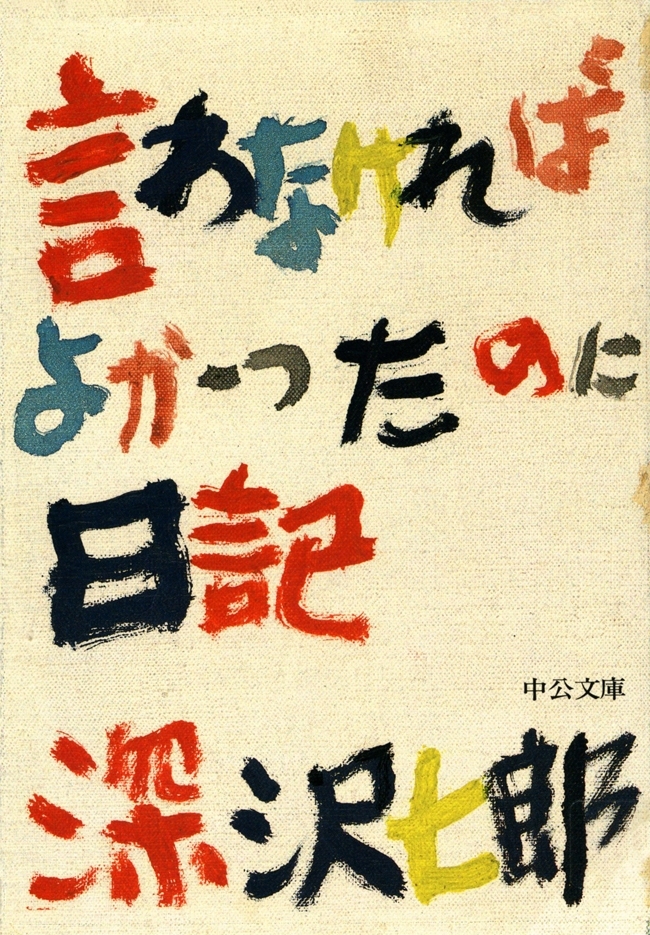 言わなければ
よかったのに
日記
中公文庫
深沢七郎